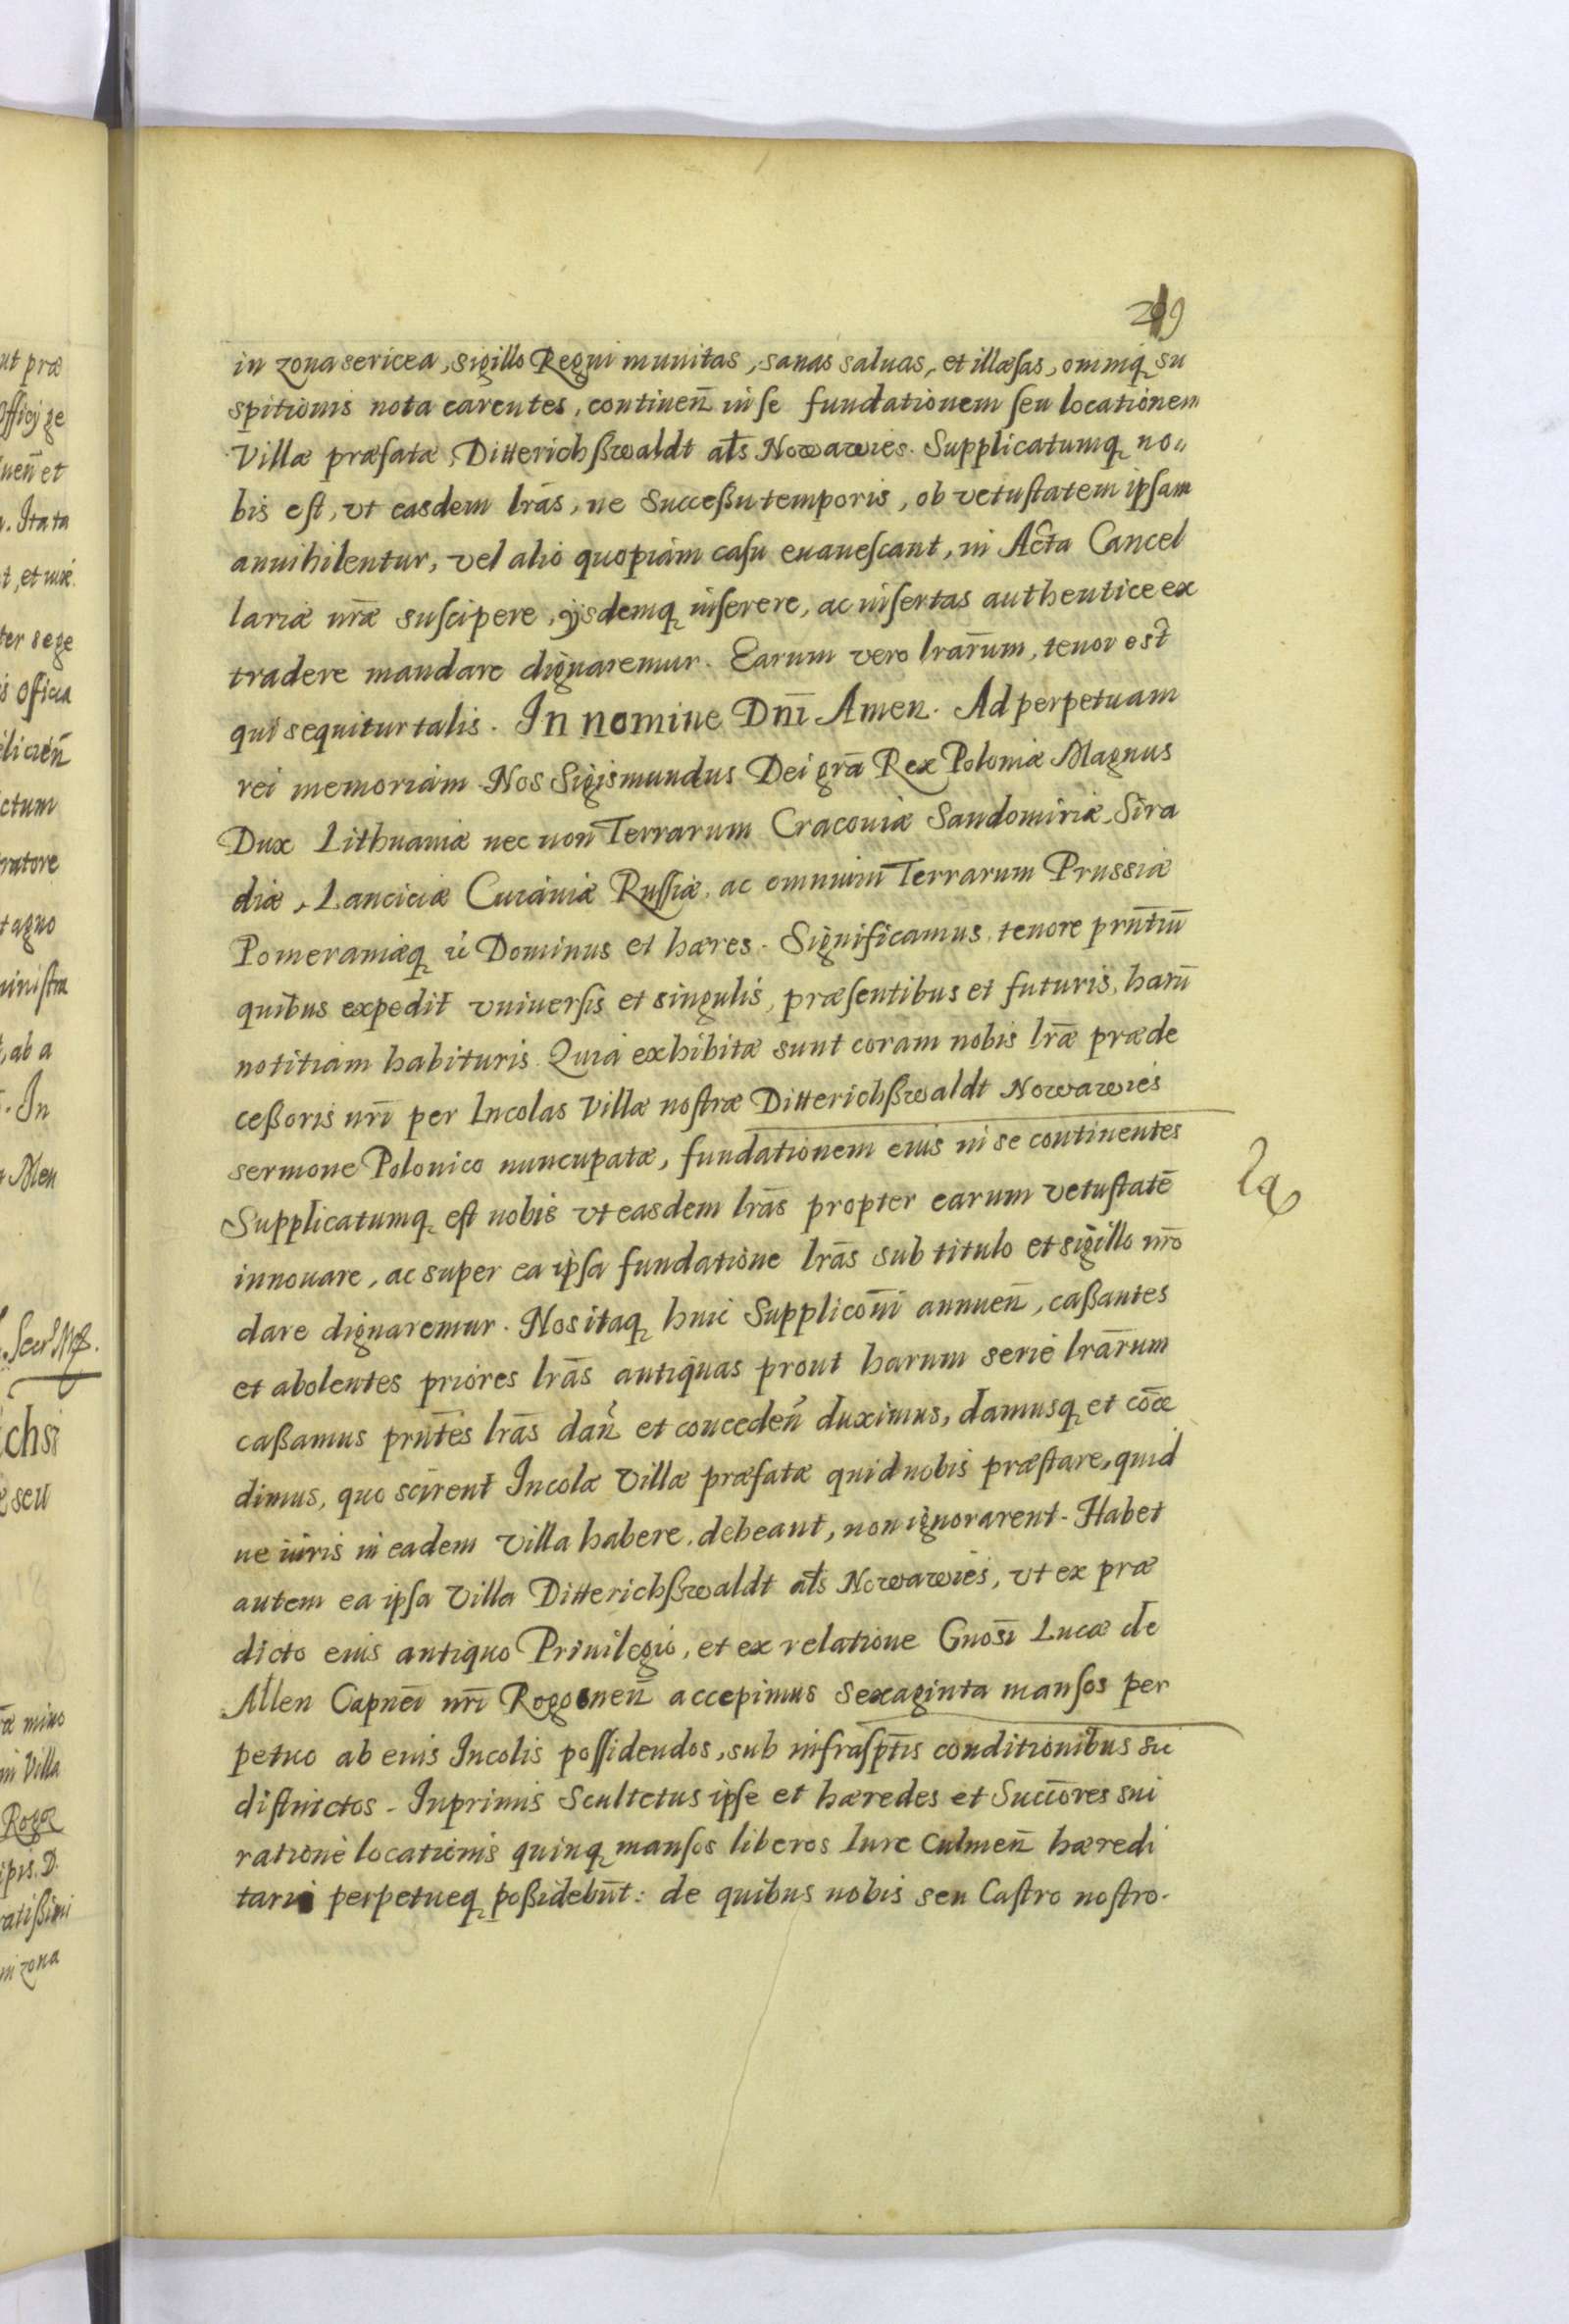 in zona sericea, sigillo Regni munitas, sanas saluas, et illæsas, omniq su
spitionis nota carentes, continen̄ in se fundationem seu locationem
Villæ præfatæ Ditterichßwaldt al̄s Nowawies. Supplicatumq no„
bis est, vt easdem lrās, ne Successu temporis, ob vetustatem ipsam
annihilentur, vel alio quopiam casu euanescant, in Acta Cancel
lariæ nrǣ suscipere, ijsdemq inserere, ac insertas authentice ex
tradere mandare dignaremur. Earum vero lrārum, tenor est
qui sequitur talis. In nomine Dnī Amen. Ad perpetuam
rei memoriam. Nos Sigismundus Dei grā Rex Poloniæ Magnus
Dux Lithuaniæ nec non Terrarum Cracouiæ Sandomiriæ, Sira
diæ, Lanciciæ Cuiauiæ Russiæ, ac omnium Terrarum Prussiæ
Pomeraniæq Dominus et hæres. Significamus tenore prn̄tiū
quibus expedit vniuersis et singulis, præsentibus et futuris, harū
notitiam habituris. Quia exhibitæ sunt coram nobis lrǣ præde
ceßoris nrī per Incolas Villæ nostræ Ditterichßwaldt Nowawies
sermone Polonico nuncupatæ, fundationem eius in se continentes
Supplicatumq est nobis vt easdem lrās propter earum vetustatē
innouare, ac super ea ipsa fundatione lrās sub titulo et sigillo nrō
dare dignaremur. Nos itaq huic Supplicōni annuen̄, caßantes
et abolentes priores lrās antiquas prout harum serie lrārum
caßamus prn̄tes lrās dan̄ et conceden̄ duximus, damusq et cōce
dimus, quo scirent Incolæ Villæ præfatæ quid nobis præstare, quid
ne iuris in eadem Villa habere debeant, non ignorarent. Habet
autem ea ipsa Villa Ditterichßwaldt al̄s Nowawies, vt ex præ
dicto eius antiquo Priuilegio, et ex relatione Gnosī Lucæ de
Allen Capneī nrī Rogosnen̄ accepimus sexaginta mansos per
petuo ab eius Incolis possidendos, sub infrasp̄tis conditionibus su
distinctos. Inprimis Scultetus ipse et hæredes et Succ̄ores sui
ratione locationis quinq mansos liberos Iure Culmen̄ hæredi
tario perpetueq poßidebūt: de quibus nobis seu Castro nostro